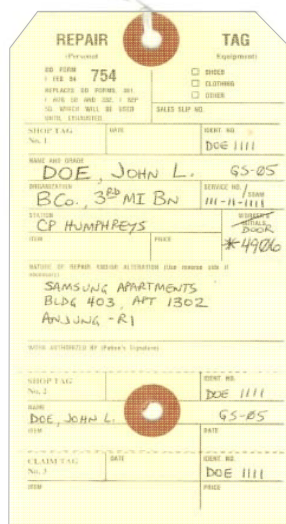 REPAIR TAG
(Personal Equipment)
DD FORM 754
1 FEB 54
REPLACES DD FORMS 351,
1 AUG 50 AND 352, 1 SEP
50, WHICH WILL BE USED
UNTIL EXHAUSTED
☐ SHOES
☐ CLOTHING
☐ OTHER
SALES SLIP NO.
SHOP TAG No. 1
DATE
IDENT NO.
DOE 1111
NAME AND GRADE
DOE, JOHN L. GS-05
ORGANIZATION
B CO., 3RD MI BN
SERVICE NO./SSAN
111-11-1111
STATION
CP HUMPHREYS
WORKER'S INITIALS
DOOR
*4906
ITEM
PRICE
NATURE OF REPAIR AND/OR ALTERATION
SAMSUNG APARTMENTS
BLDG 403, APT 1302
ANJUNG-RI
WORK AUTHORIZED BY
SHOP TAG No. 2
IDENT NO.
DOE 1111
NAME
DOE, JOHN L. GS-05
ITEM
DATE
CLAIM TAG No. 3
DATE
IDENT NO.
DOE 1111
ITEM
PRICE